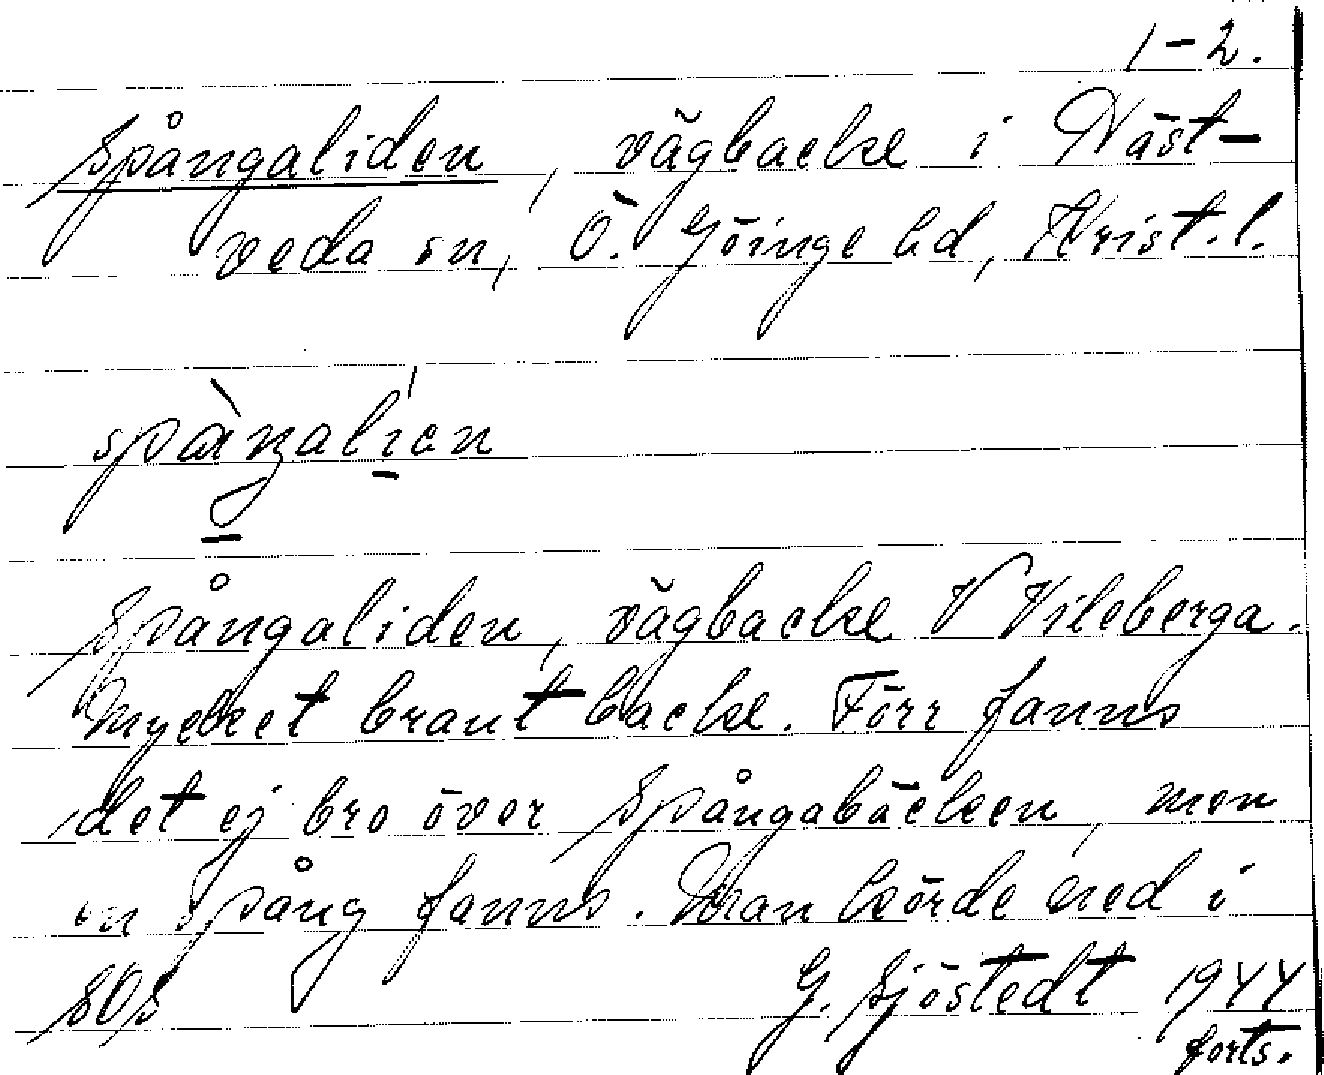 1-2.
Spångaliden, vägbacke i Näst-
veda sn, Ö. Göinge hd, Krist. l.
Spångaliden, vägbacke V Vileberga.
Mycket brant backe. Förr fanns
det ej bro över Spångabäcken, men
en spång fanns. Man körde ned i
SOS G. Sjöstedt 1944
forts.